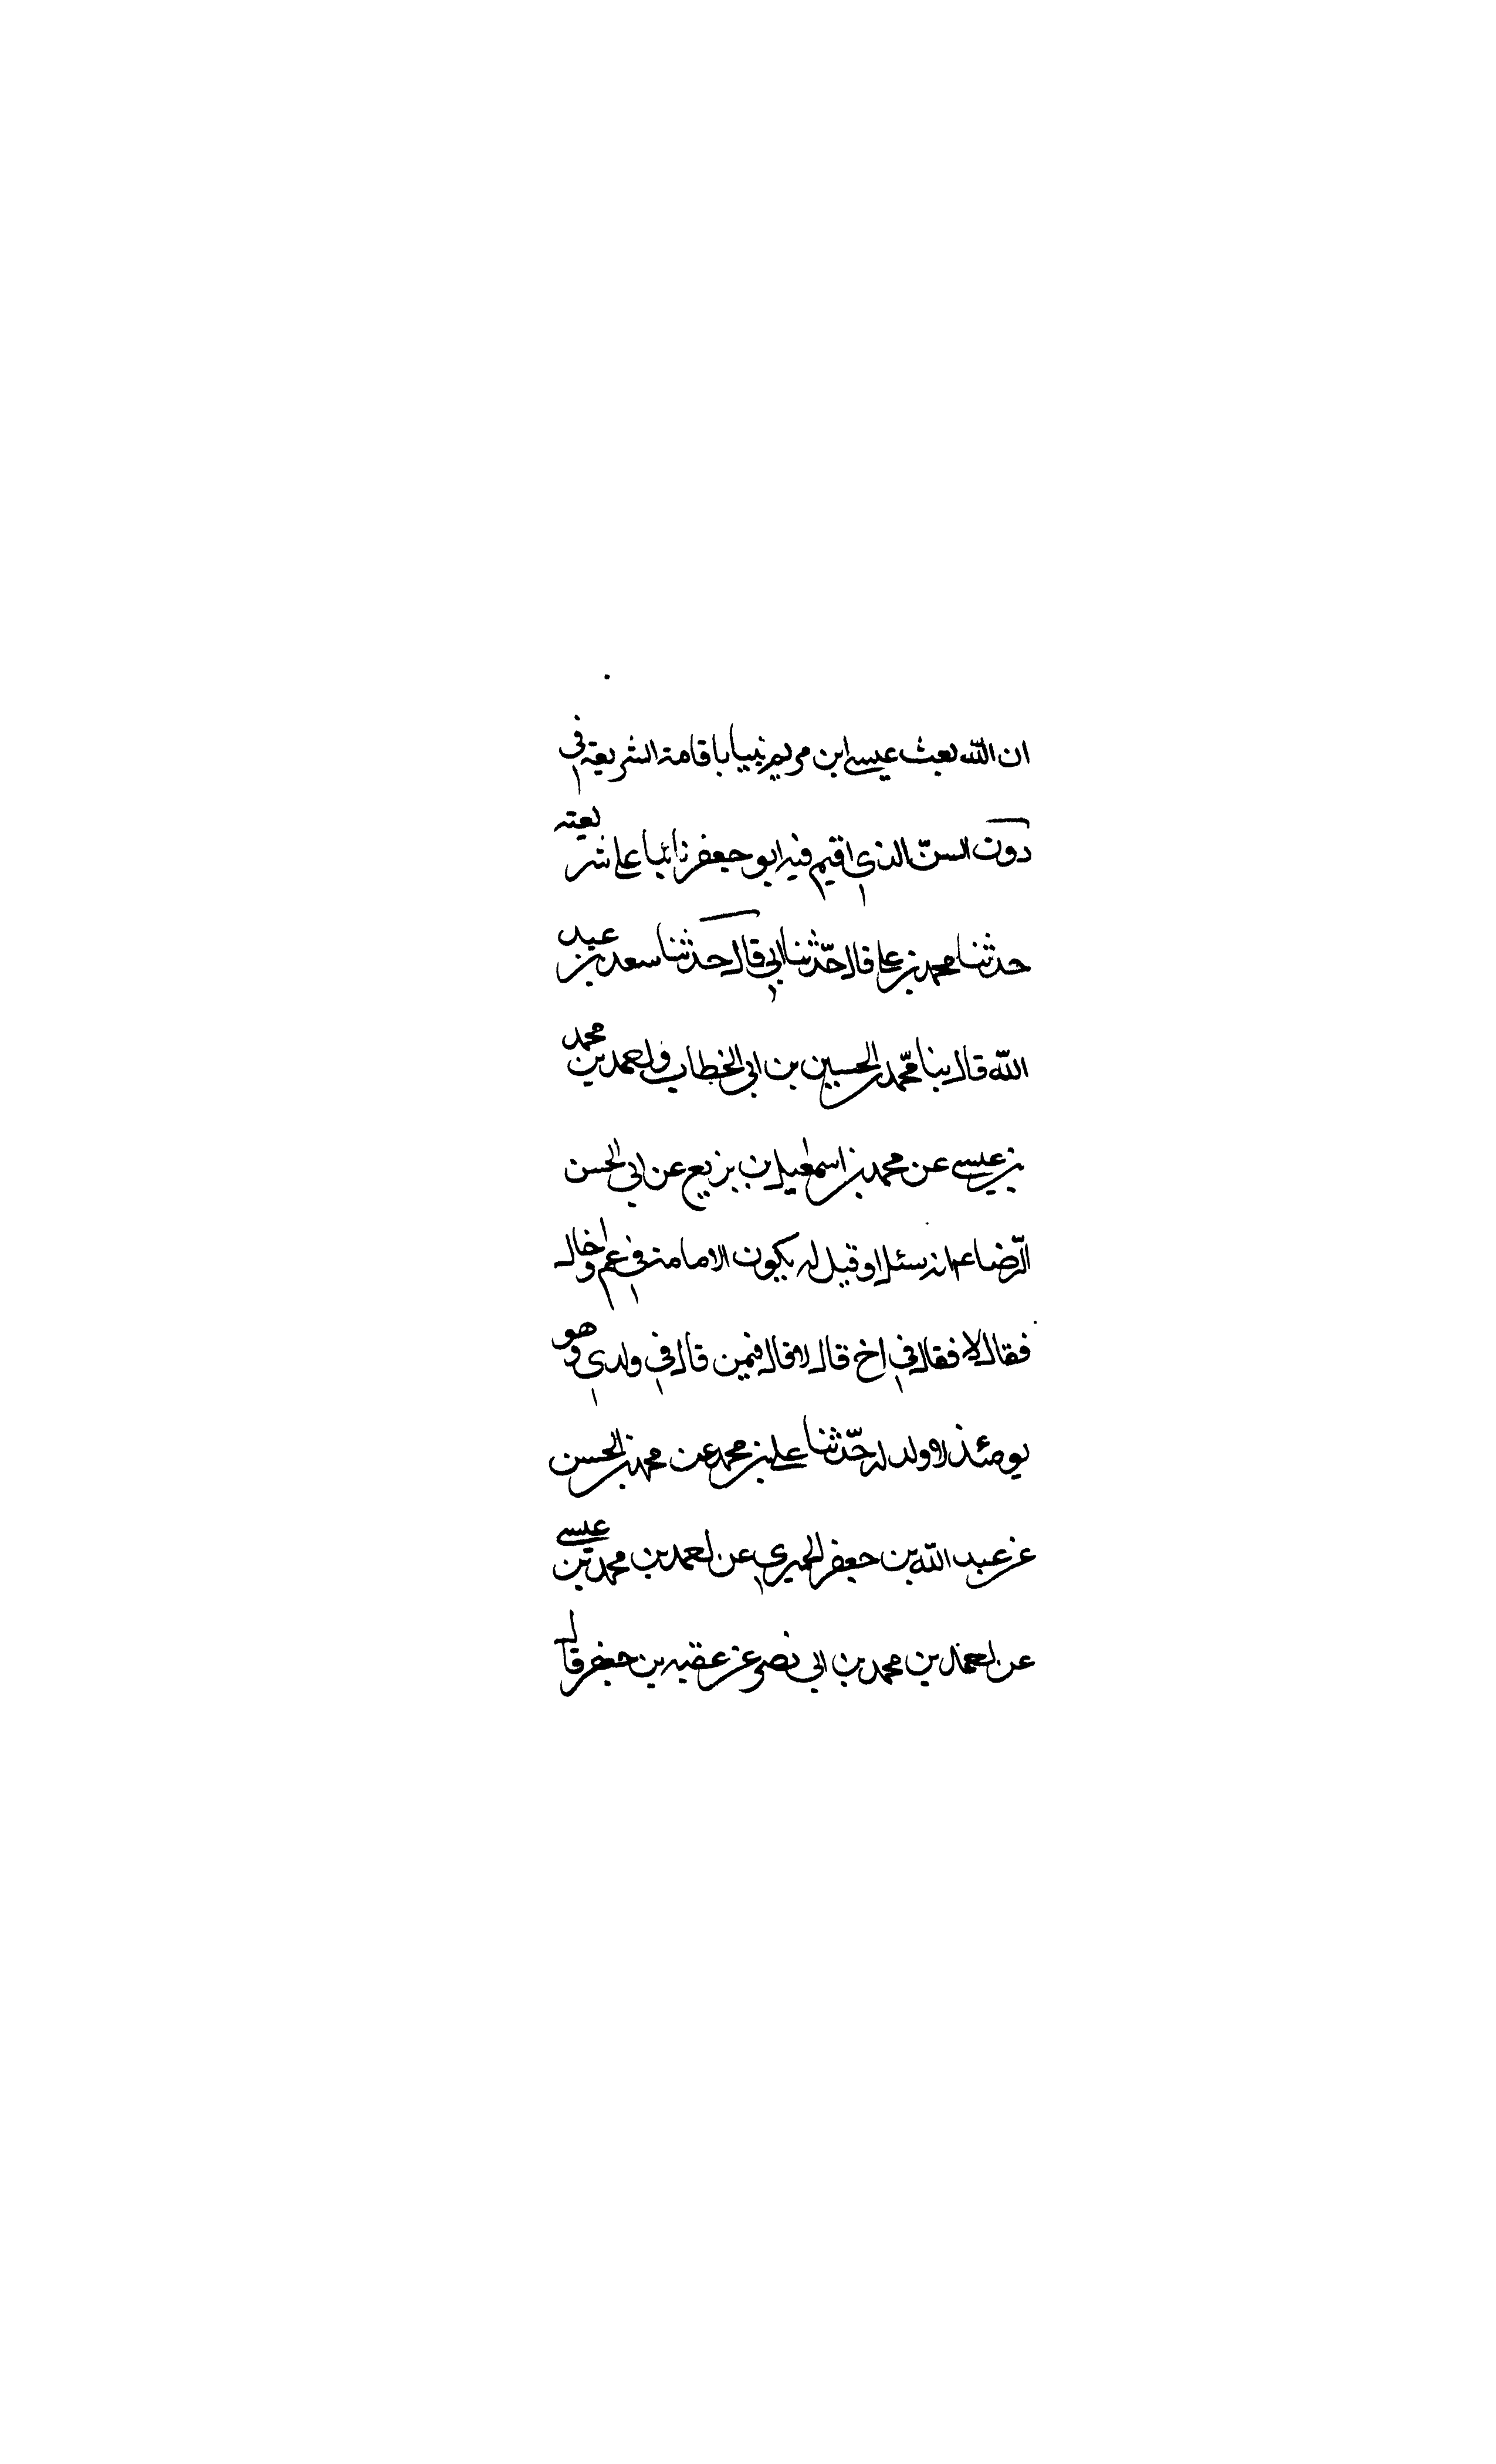 ان الله بعث عيسى ابن مريم نبيا باقامة الشريعة في
دون السنّ الذي اقيم فيه ابو جعفر نائبا على شريعته
حدثنا محمد بن على قال حدّثنا ابي قال حدثنا سعد بن عبد
الله قال بنا محمّد بن الحسين بن ابي الخطاب واحمد بن محمد
بن عيسى عن محمد بن اسمعيل بن بزيع عن ابي الحسن
الرّضا ع انه سئل او قيل له يكون الامامة في عم او خال
فقال لا فقال في اخ قال لا قال فيمن قال في ولدي وهو
يومئذ لا ولد له حدّثنا على بن محمد عن محمد بن الحسن
عن عبد الله بن جعفر الحميري عن احمد بن محمد بن عيسى
عن احمد بن محمد بن ابي نصر عن عقبه بن جعفر قال